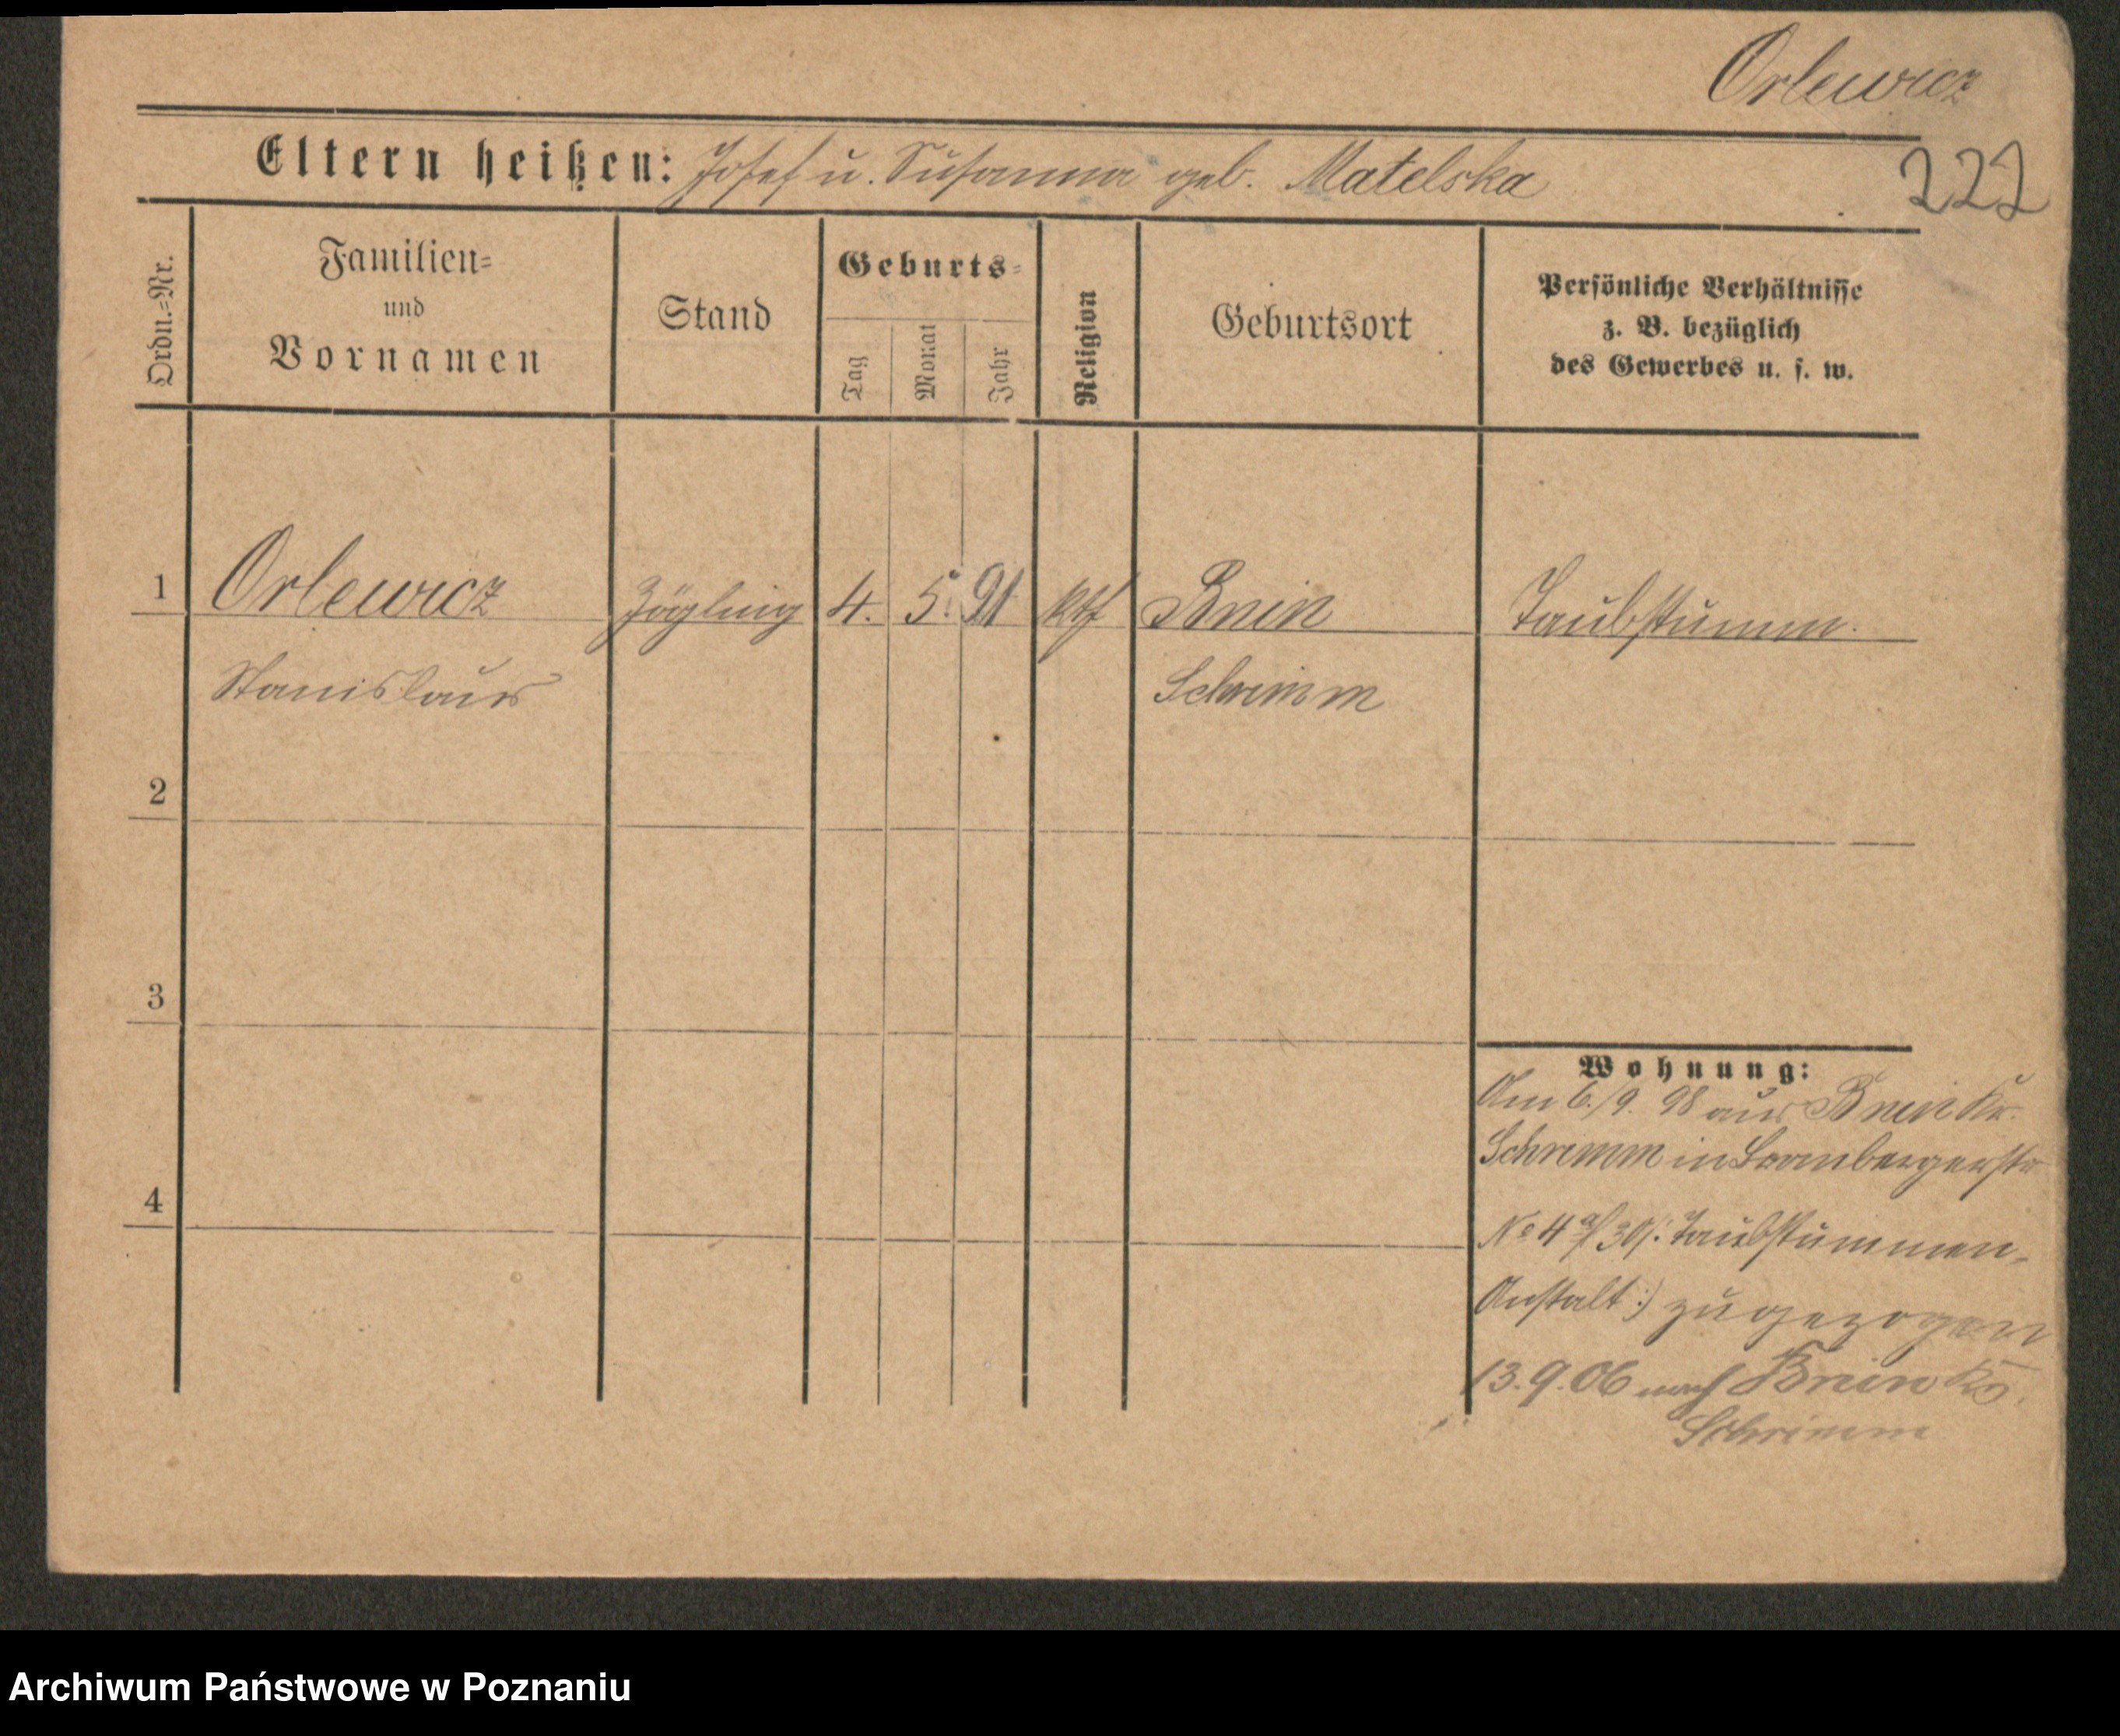 Orlewicz
Eltern heißen: Josef u. Susanna geb. Matelska
222
Ordn.=Nr.
Familien=
und
Vornamen
Stand
Geburts=
Tag
Monat
Jahr
Religion
Geburtsort
Persönliche Verhältnisse
z. B. bezüglich
des Gewerbes u. s. w.
1 Orlewicz Zögling 4. 5. 91 kth Bnin Taubstumm.
Stanislaus Schrimm
2
3
4
Wohnung:
Am 6./9. 98 aus Bnin Kr.
Schrimm in Brombergerstr
No 4 /30/: Taubstummen-
Anstalt:) zugezogen
13.9.06 nach Bnin Kr.
Schrimm
Archiwum Państwowe w Poznaniu